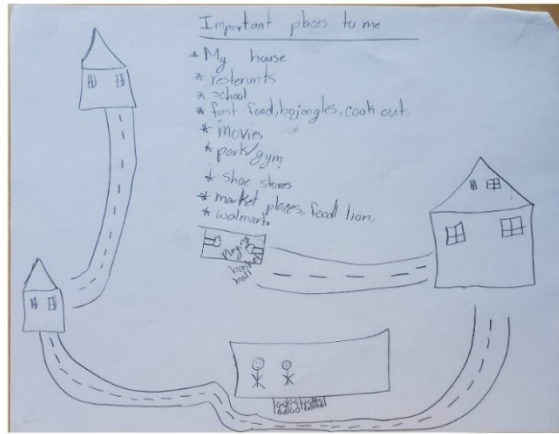 Important places to me
* My house
* resterunts
* school
* fast food, bojangles, cook out
* movies
* park/gym
* shoe stores
* market places, food lion,
* walmart.
playing
basket
ball